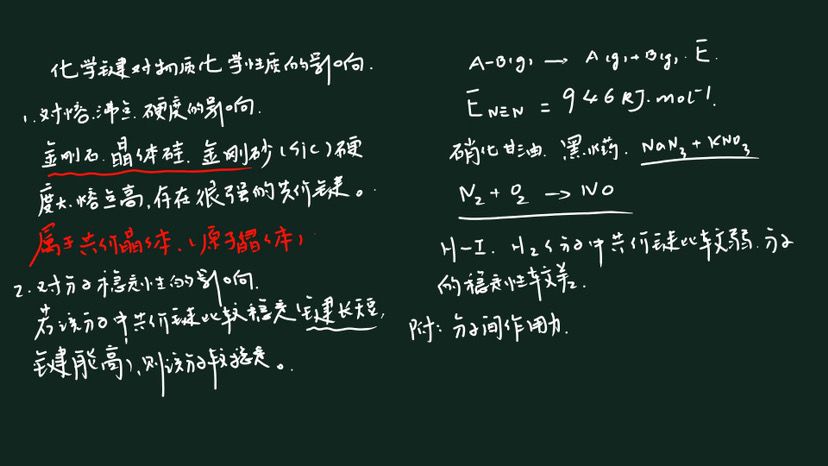 化学键对物质化学性质的影响.
1.对熔.沸点.硬度的影响.
金刚石.晶体硅.金刚砂(SiC)硬
度大.熔点高,存在很强的共价键。
属于共价晶体.(原子晶体)
2.对分子稳定性的影响.
若该分子中共价键比较稳定(键长短,
键能高),则该分子较稳定。
A-B(g) → A(g)+B(g). E.
E N≡N = 946 KJ·mol⁻¹.
硝化甘油.黑火药. NaN₃+KNO₃
N₂ + O₂ → NO
H-I. 分子中共价键比较弱.分子
的稳定性较差.
附:分子间作用力.